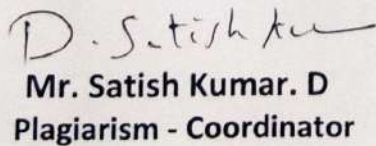 D. Satish Ku
Mr. Satish Kumar. D
Plagiarism - Coordinator